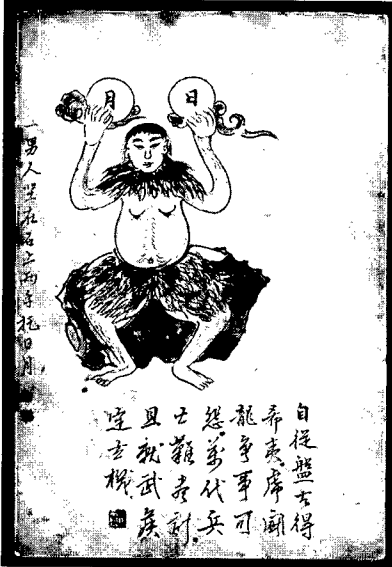 月
日
一男人坐在石上兩手托日月
自從盤古得
希夷虎鬥
龍爭事可
萬代
難盡
且就武侯
定玄機